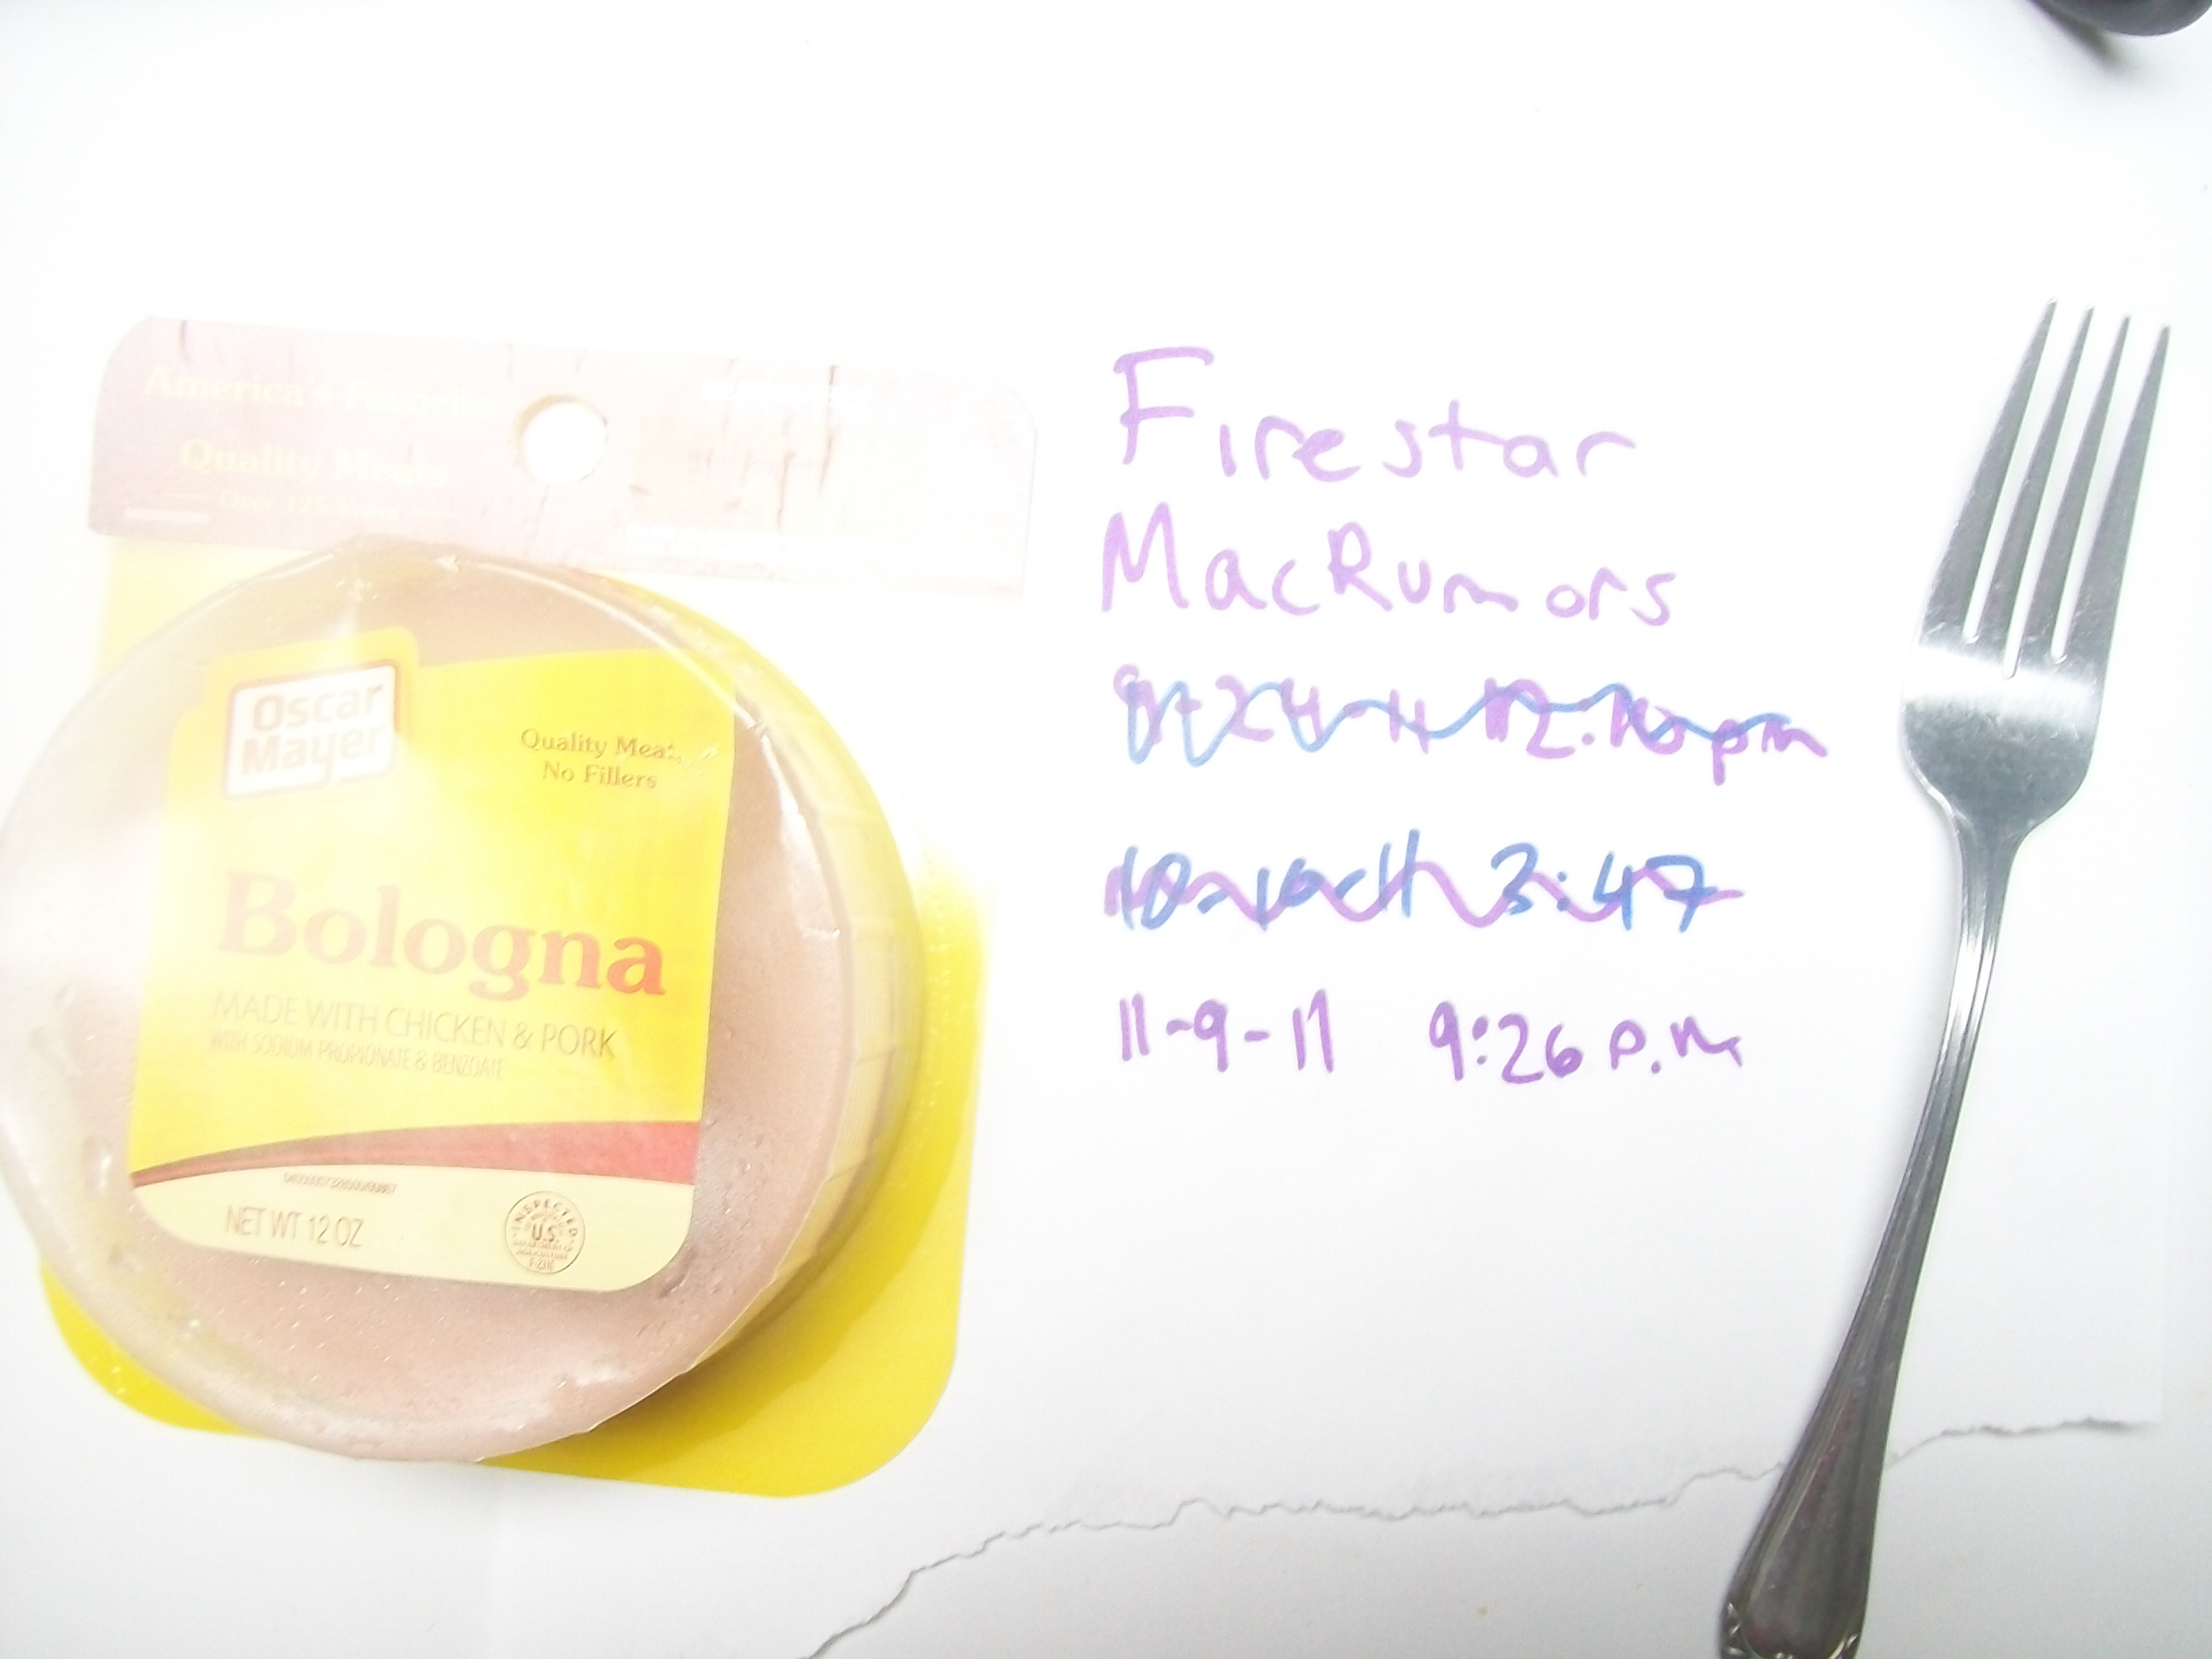 America's Favorite
Quality Meats
Over 125 Years
Oscar
Mayer
Quality Meat,
No Fillers
Bologna
MADE WITH CHICKEN & PORK
WITH SODIUM PROPIONATE & BENZOATE
NET WT 12 OZ
INSPECTED
U.S.
DEPARTMENT OF
AGRICULTURE
Firestar
MacRumors
3:47
11-9-11 9:26 p.m